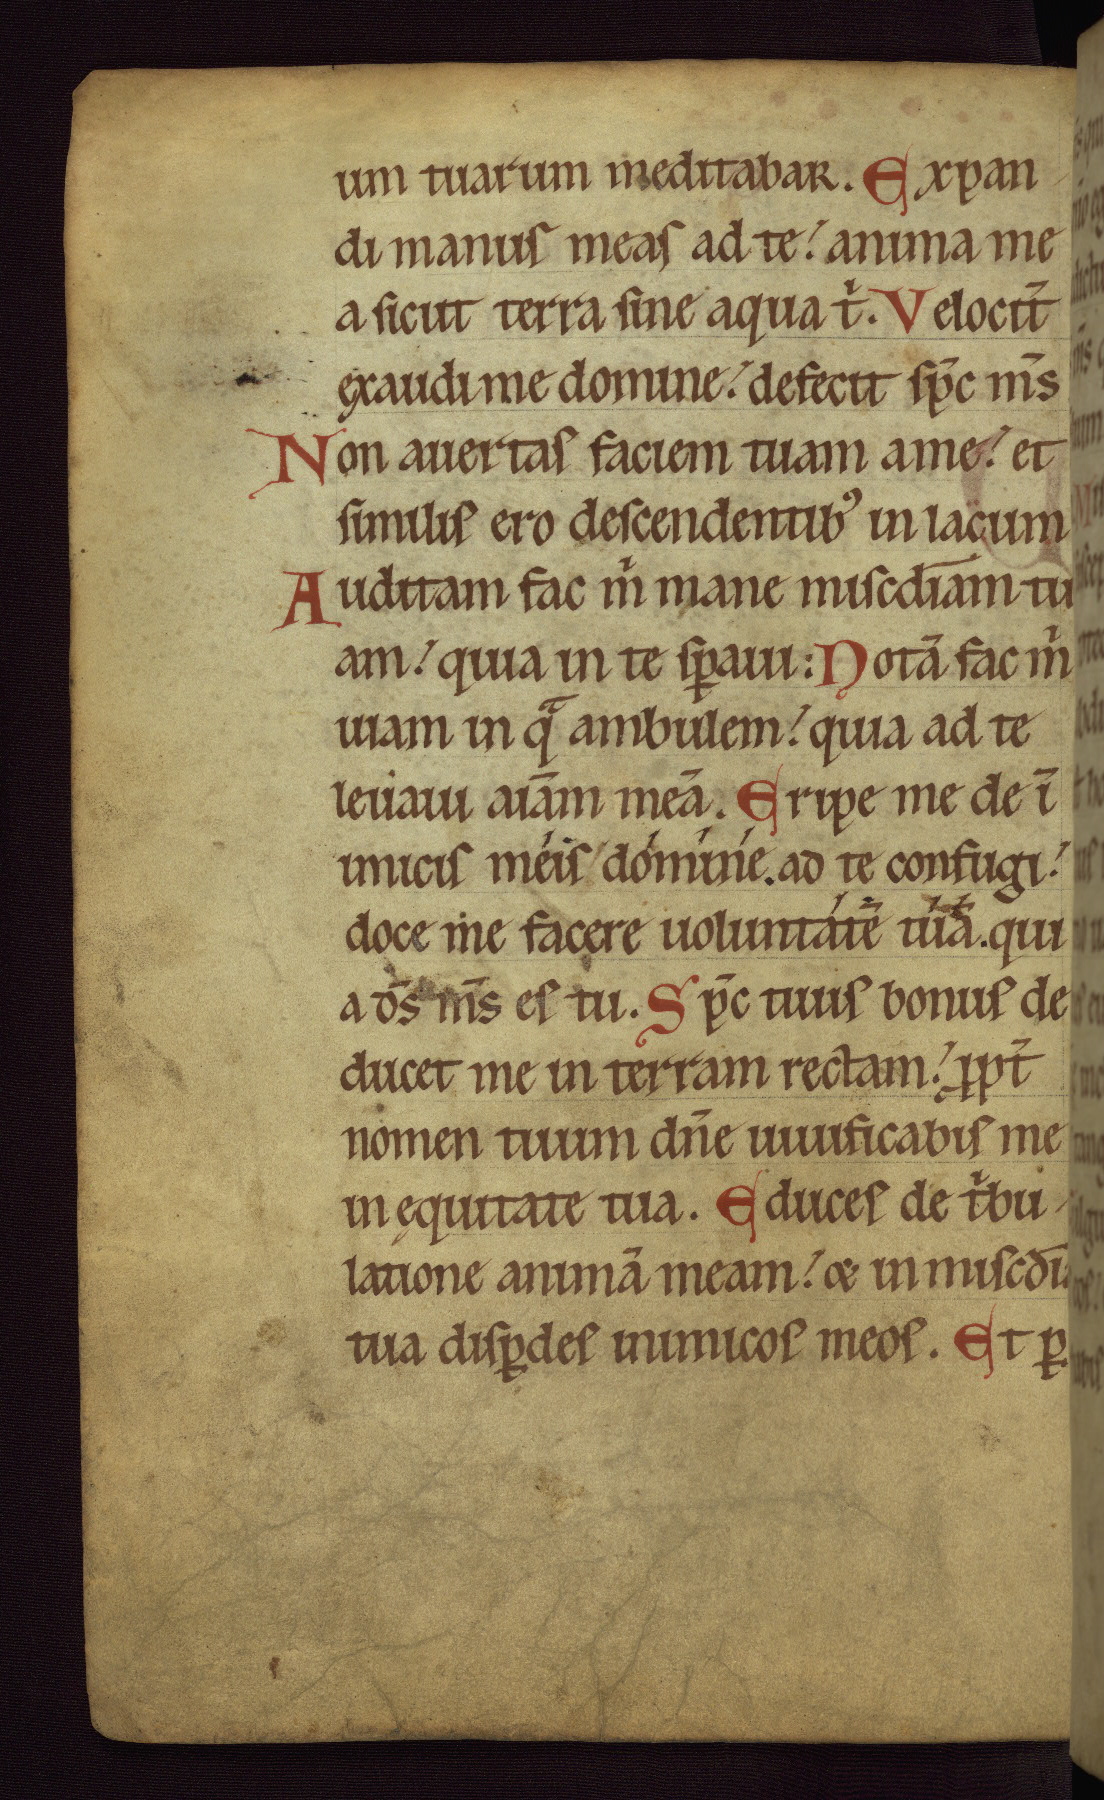 um tuarum meditabar. Expan-
di manus meas ad te! anima me
a sicut terra sine aqua t̉. Velocit̄
exaudi me domine! defecit sp̄c m̄s
Non auertas faciem tuam a me! et
similis ero descendentib' in lacum
Auditam fac m̉ mane miscdīam tu
am! quia in te sꝑaui: Notā fac m̉
uiam in qͣ ambulem! quia ad te
leuaui aīam meā. Eripe me de ī
imicis meis domine. ad te confugi!
doce me facere uoluntatē tuā. qui
a d̄s m̄s es tu. Sp̄c tuus bonus de
ducet me in terram rectam! ꝓpt̄
nomen tuum dn̄e uiuificabis me
in ęquitate tua. Educes de t̉bu-
latione animā meam! & in miscd̄ia
tua disꝑdes inimicos meos. Et ꝑ